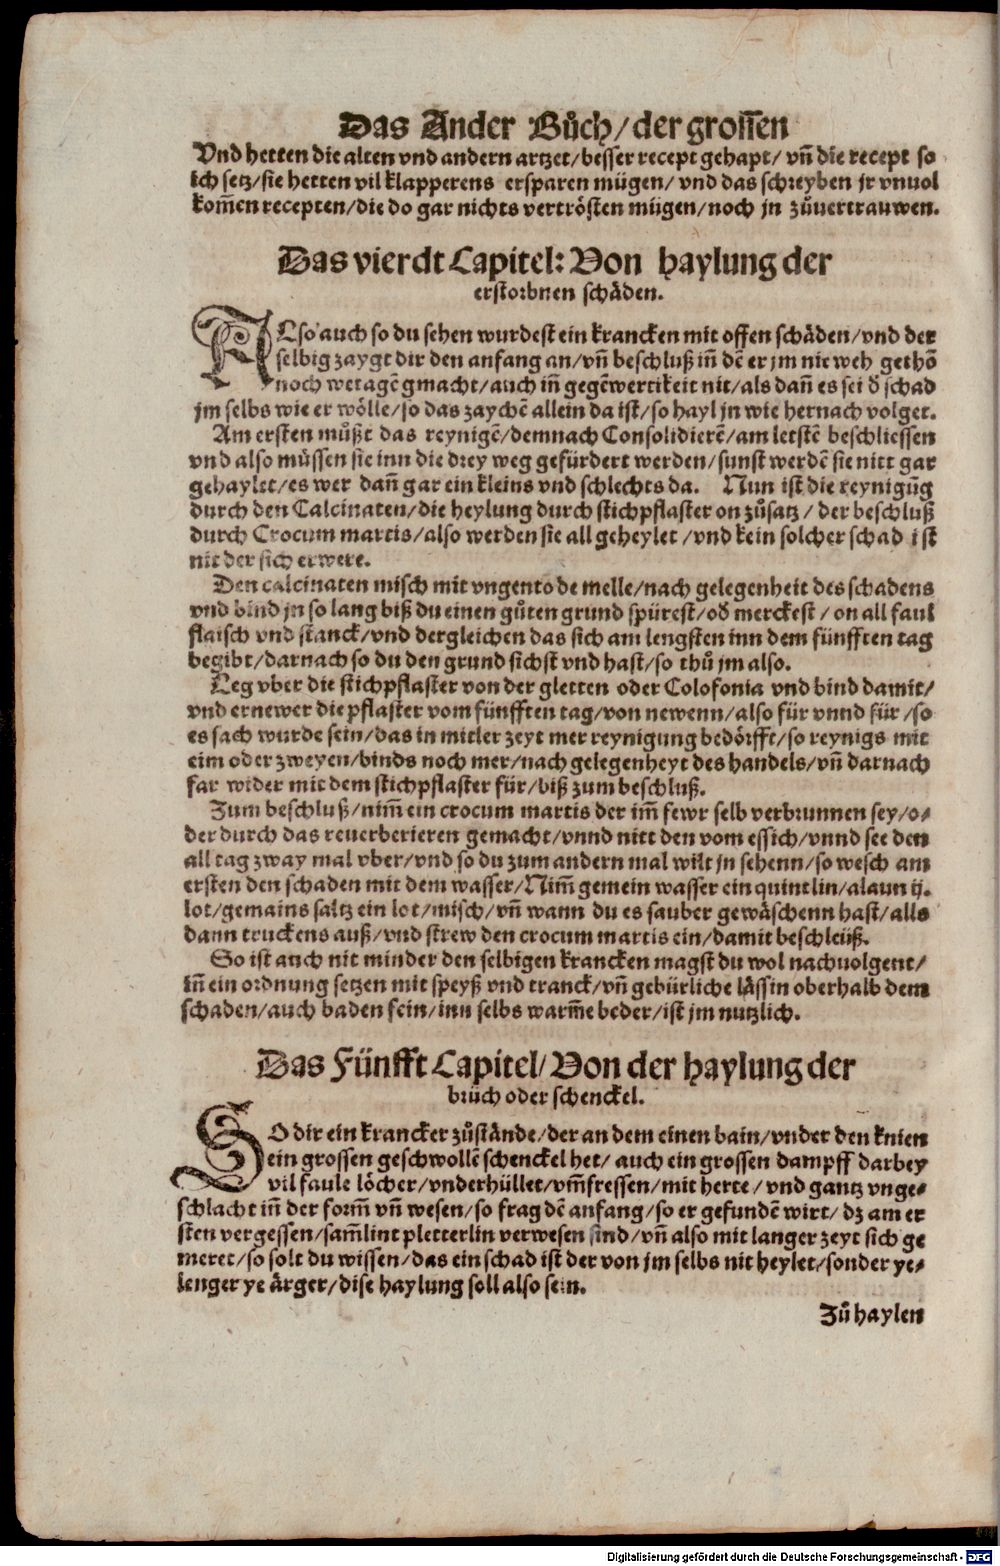 Das Ander Bůch/ der grossen
Vnd hetten die alten vnd andern artzet/ besser recept gehapt/ vñ die recept so
ich setz/ sie hetten vil klapperens ersparen mügen/ vnd das schreyben jr vnuol
kom̃en recepten/ die do gar nichts vertrösten mügen/ noch jn zůuertrauwen.
Das vierdt Capitel: Von haylung der
erstorbnen schäden.
ALso auch so du sehen wurdest ein krancken mit offen schäden/ vnd der
selbig zaygt dir den anfang an/ vñ beschluß iñ dẽ er jm nie weh gethõ
noch wetagẽ gmacht/ auch iñ gegẽwertikeit nit/ als dañ es sei d̃ schad
jm selbs wie er wölle/ so das zaychẽ allein da ist/ so hayl jn wie hernach volget.
Am ersten můßt das reynigẽ/ demnach Consolidierẽ/ am letstẽ beschliessen
vnd also müssen sie inn die drey weg gefürdert werden/ sunst werdẽ sie nitt gar
gehaylet/ es wer dañ gar ein kleins vnd schlechts da. Nun ist die reynigũg
durch den Calcinaten/ die heylung durch stichpflaster on zůsatz/ der beschluß
durch Crocum martis/ also werden sie all geheylet/ vnd kein solcher schad ist
nit der sich erwere.
Den calcinaten misch mit vngento de melle/ nach gelegenheit des schadens
vnd bind jn so lang biß du einen gůten grund spürest/ od̃ merckest/ on all faul
flaisch vnd stanck/ vnd dergleichen das sich am lengsten inn dem fünfften tag
begibt/ darnach so du den grund sichst vnd hast/ so thů jm also.
Leg vber die stichpflaster von der gletten oder Colofonia vnd bind damit/
vnd ernewer die pflaster vom fünfften tag/ von newenn/ also für vnnd für/ so
es sach wurde sein/ das in mitler zeyt mer reynigung bedörfft/ so reynigs mit
eim oder zweyen/ binds noch mer/ nach gelegenheyt des handels/ vñ darnach
far wider mit dem stichpflaster für/ biß zum beschluß.
Zum beschluß/ nim̃ ein crocum martis der im̃ fewr selb verbrunnen sey/ o-
der durch das reuerberieren gemacht/ vnnd nitt den vom essich/ vnnd see den
all tag zway mal vber/ vnd so du zum andern mal wilt jn sehenn/ so wesch am
ersten den schaden mit dem wasser/ Nim̃ gemein wasser ein quintlin/ alaun ij.
lot/ gemains saltz ein lot/ misch/ vñ wann du es sauber gewäschenn hast/ alls
dann truckens auß/ vnd strew den crocum martis ein/ damit beschleüß.
So ist auch nit minder den selbigen krancken magst du wol nachuolgent/
iñ ein ordnung setzen mit speyß vnd tranck/ vñ gebürliche lässin oberhalb dem
schaden/ auch baden sein/ inn selbs warm̃e beder/ ist jm nutzlich.
Das Fünfft Capitel/ Von der haylung der
brüch oder schenckel.
SO dir ein krancker zůstände/ der an dem einen bain/ vnder den knien
ein grossen geschwollẽ schenckel het/ auch ein grossen dampff darbey
vil faule löcher/ vnderhüllet/ vm̃fressen/ mit herte/ vnd gantz vnge-
schlacht iñ der form̃ vñ wesen/ so frag dẽ anfang/ so er gefundẽ wirt/ dz am er
sten vergessen/ sam̃lint pletterlin verwesen sind/ vñ also mit langer zeyt sich ge
meret/ so solt du wissen/ das ein schad ist der von jm selbs nit heylet/ sonder ye-
lenger ye ärger/ dise haylung soll also sein.
Zů haylen
Digitalisierung gefördert durch die Deutsche Forschungsgemeinschaft - DFG